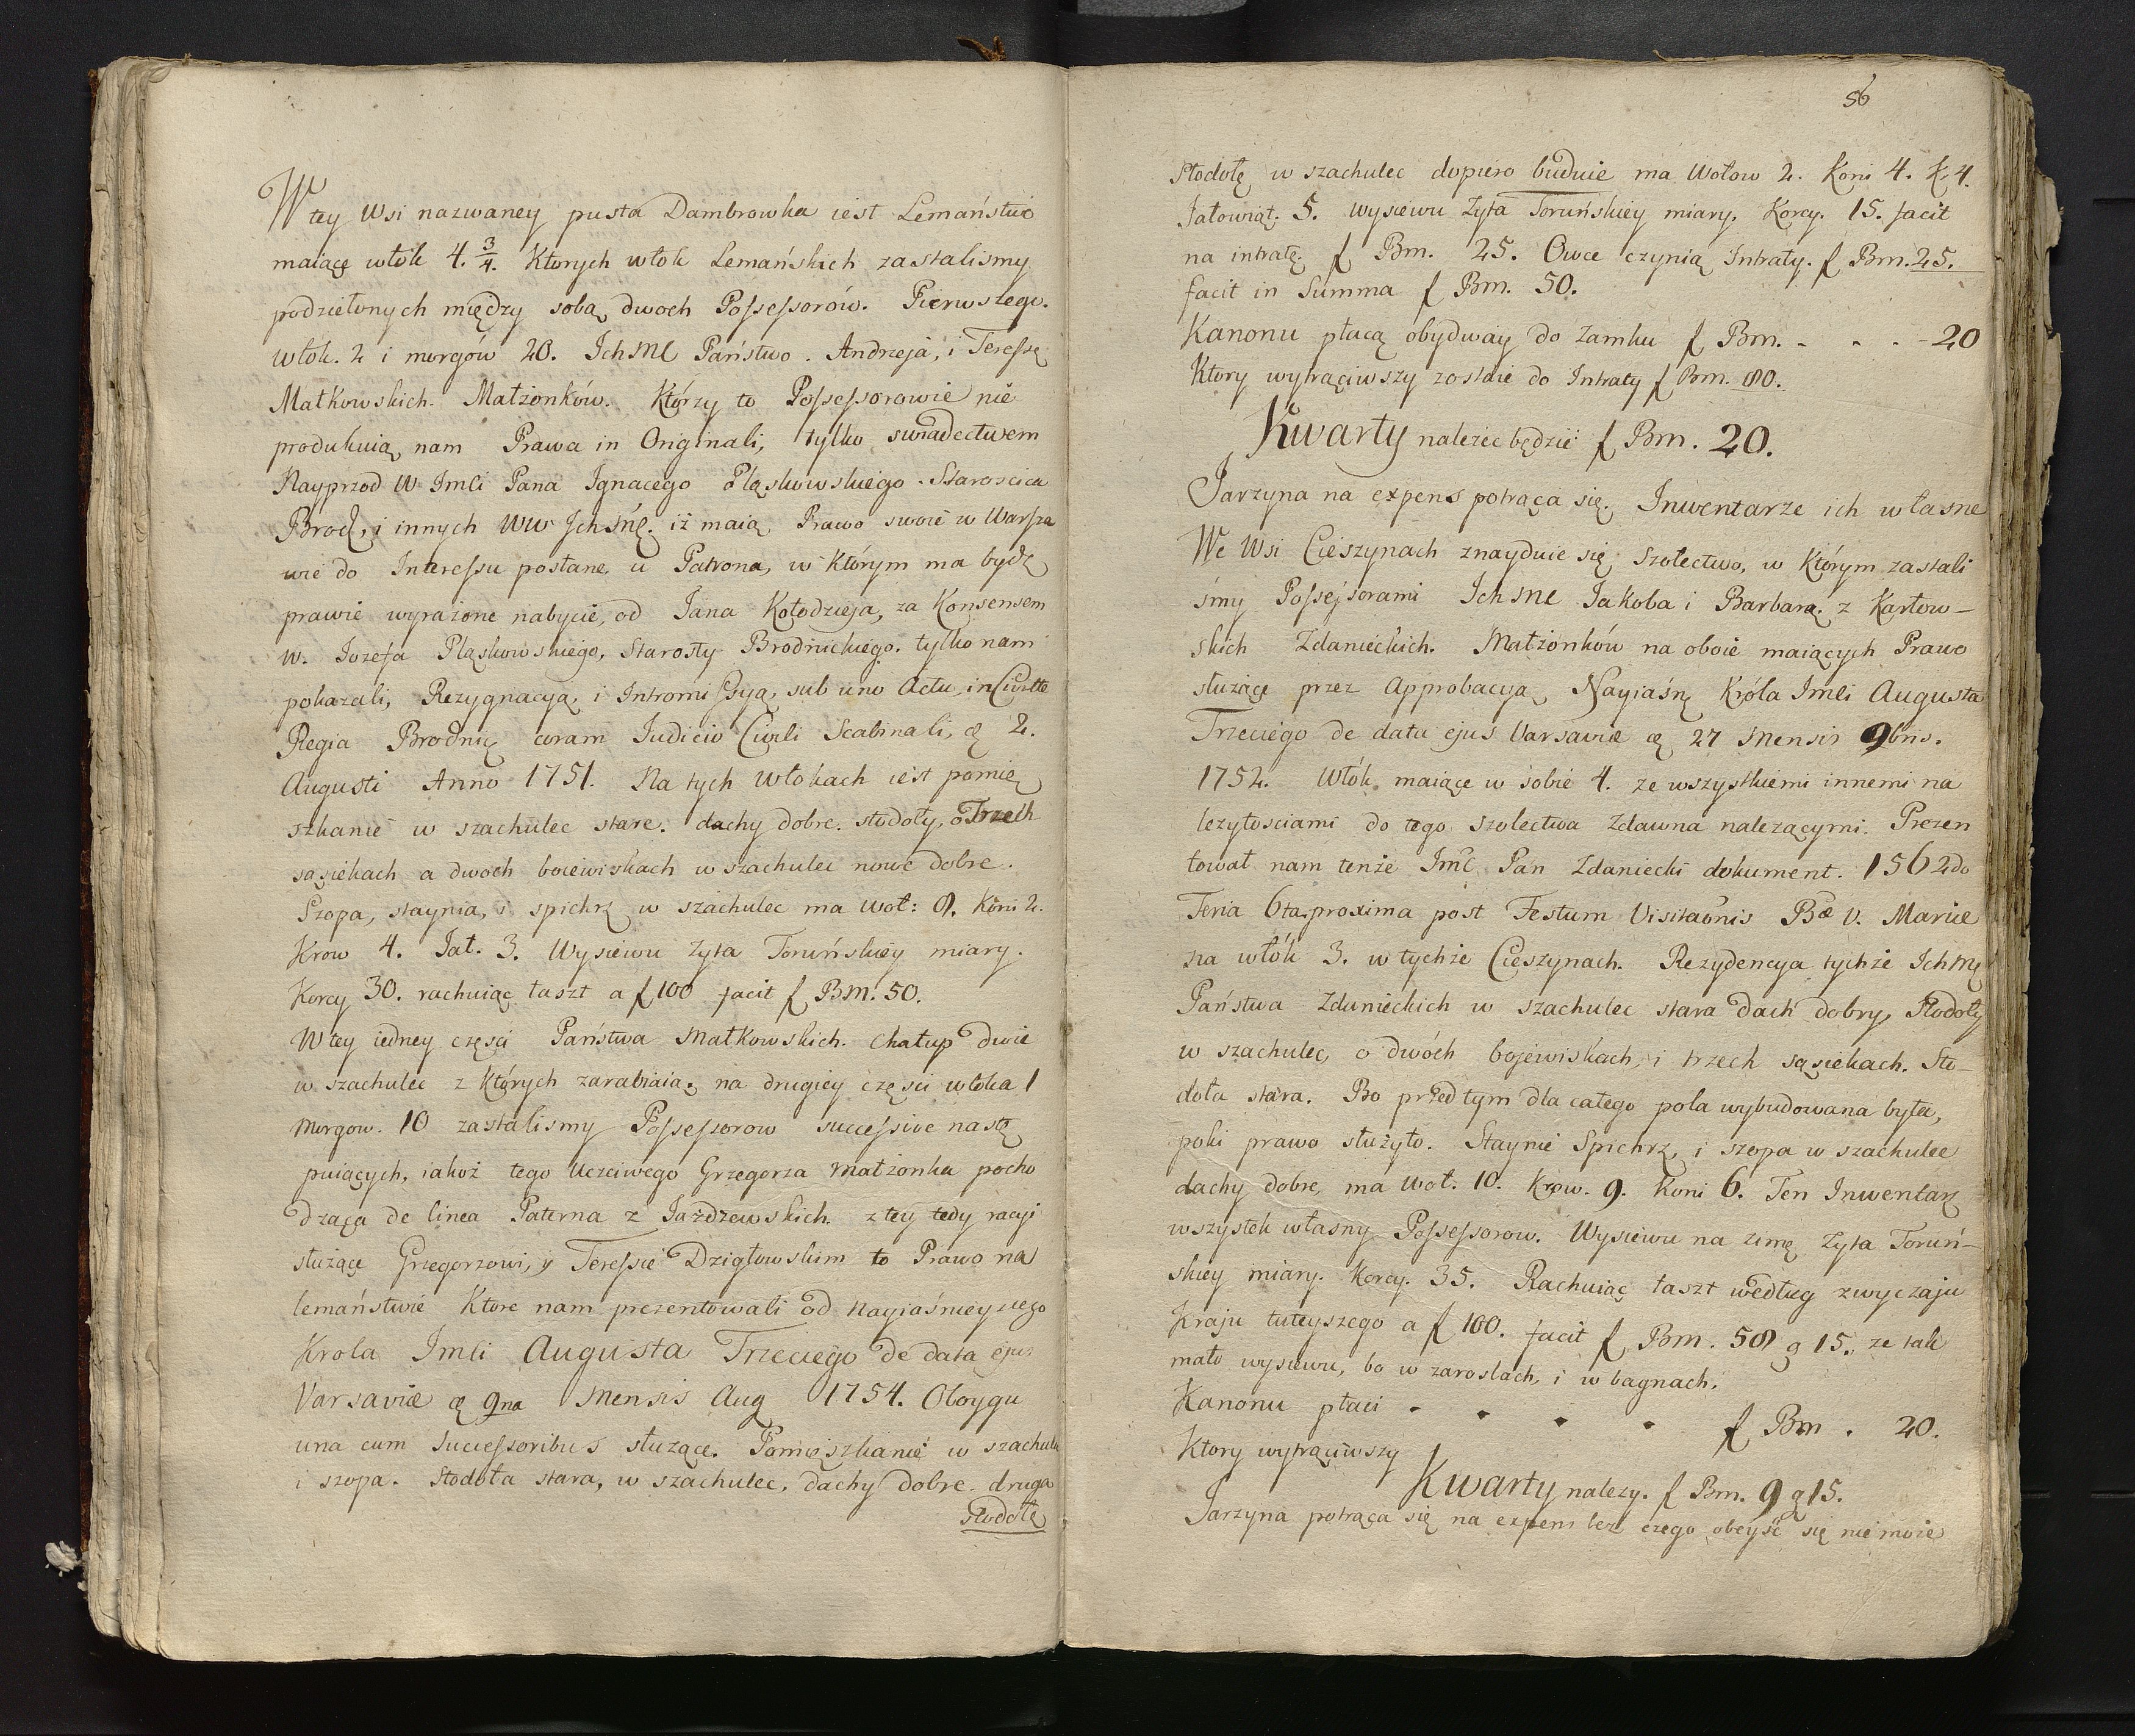 W tey Wsi nazwaney pusta Dambrowka iest Lemaństwo
maiącę włók 4. 3/4. Ktorych włok Lemańskich zastalismy
podzielonych między sobą dwoch Possessorów. Pierwszego.
włok. 2 i morgów 20. Ich Mć Państwo. Andrzeja, i Teressę
Małkowskich. Małżonków. Którzy to Possessorowie nie
produkuią nam Prawa in Originali, tylko swiadectwem
Nayprzod W Imći Pana Ignacego Pląskowskiego. Starościca
Brod, i innych WW Ich Mć. iż maią Prawo swoie w Warsza
wie do Interessu posłane u Patrona, w którym ma bydź
prawie wyrażone nabycie, od Jana Kołodzieja, za Konsensem
W. Jozefa Pląskowskiego, Starosty Brodnickiego. tylko nam
pokazali, Rezygnacyą, i Intromissyą, sub uno Actu, in Civitte
Regia Brodnię coram Judicio Civili Scabinali, ę 2.
Augusti Anno 1751. Na tych włokach iest pomię
szkanie w szachulec stare. dachy dobre. stodoły, o Trzech
sąsiekach a dwoch boiewiskach w szachulec nowe dobre.
Szopa, staynia, i spichrz w szachulec ma woł: 8. Koni 2.
Krow 4. Jał. 3. Wysiewu Zyta Toruńskiey miary.
Korcy 30. rachuiąc łaszt a f 100 facit f Bm. 50.
W tey iedney części Państwa Małkowskich. Chałup dwie
w szachulec z których zarabiaią, na drugiey części włóka 1
Morgow. 10 zastalismy Possessorow successive nastę
puiących, iakoż tego Uczciwego Grzegorza małżonka pocho
dząca de linea Paterna z Jażdżewskich. z tey tedy racyi
służące Grzegorzowi, y Teressie Dzigłowskim to Prawo na
lemaństwie Ktore nam prezentowali od Nayiaśnieyszego
Krola Imći Augusta Trzeciego de data ejus
Varsaviæ ę 9na Mensis Aug 1754. Oboygu
una cum Successoribus służące. Pomięszkanie w szachule
i szopa. Stodoła stara, w szachulec, dachy dobre. druga
Stodołę
56
Stodołę w szachulec dopiero buduie ma Wołow 2. Koni 4. K 4.
Jałowiąt. 5. Wysiewu Zyta Toruńskiey miary. Korcy. 15. facit
na intratę. f Bm. 25. Owce czynią Intraty. f Bm. 25.
facit in Summa f Bm. 50.
Kanonu płacą obydway do Zamku f Bm. - - - - 20
Ktory wytrąciwszy zostaie do Intraty f Bm. 80.
Kwarty nalezec będzie f Bm. 20.
Jarzyna na expens potrąca się. Inwentarze ich własne
We Wsi Cieszynach znayduie się Szolectwo, w którym zastali
śmy Possessorami Ich Mć Jakoba i Barbarą z Karłow-
skich Zdanieckich. Małżonków na oboie maiących Prawo
służące przez Approbacyą Nayiaśn Króla Imći Augusta
Trzeciego de data ejus Varsaviæ ę 27 Mensis 9bris.
1752. Włók maiące w sobie 4. ze wszystkiemi innemi na
lezytosciami do tego Szolectwa Zdawna nalezącymi. Prezen
tował nam tenże Imć Pan Zdaniecki dokument. 1562do
Feria 6ta proxima post Festum Visitaõnis Bæ V. Mariæ
na włók 3. w tychże Cieszynach. Rezydencya tychże Ich Mć
Państwa Zdanieckich w szachulec stara dach dobry, Stodoły
w szachulec, o dwóch bojewiskach, i trzech sąsiekach. Sto-
doła stara. Bo przed tym dla całego pola wybudowana była,
poki prawo służyło. Staynie Spichrz, i szopa w szachulec
dachy dobre, ma woł. 10. Krow. 9. Koni 6. Ten Inwentarz
wszystek własny Possessorow. Wysiewu na zimę Zyta Toruń-
skiey miary. Korcy. 35. Rachuiąc łaszt według zwyczaju
Kraju tuteyszego a f 100. facit f Bm. 58 g 15. ze tak
mało wysiewu, bo w zaroslach, i w bagnach.
Kanonu płaci - - - - f Bm. 20.
Ktory wytrąciwszy
Kwarty nalezy. f Bm. 9 g 15.
Jarzyna potrąca się na expens bez czego obeyść się nie może